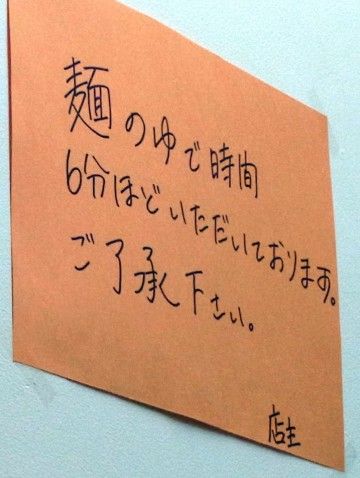 麺のゆで時間
6分ほどいただいております。
ご了承下さい。
店主